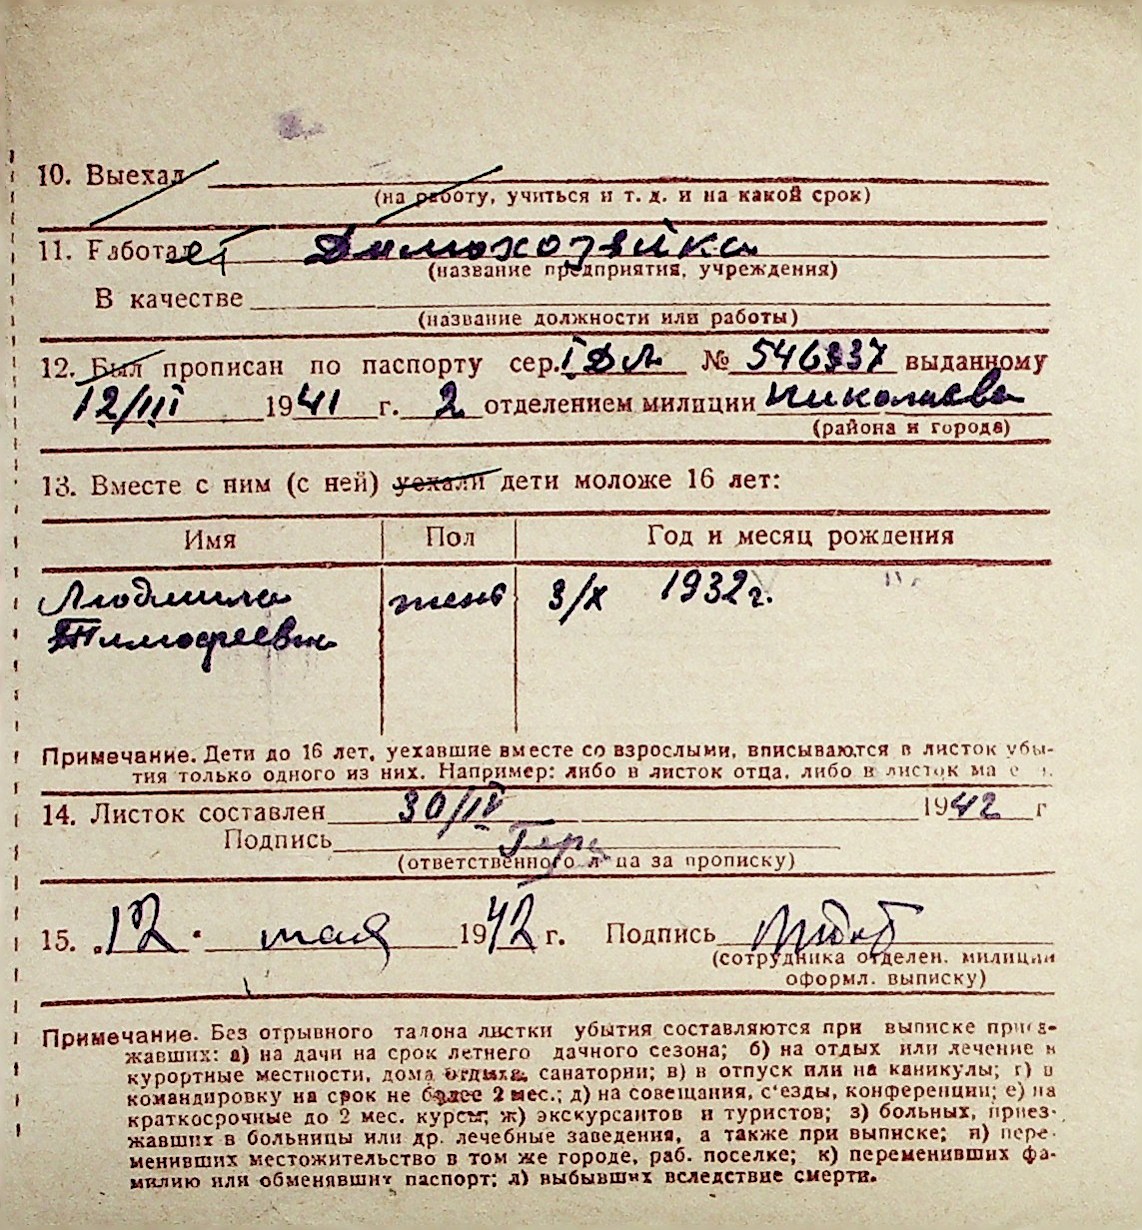 10. Выехал
(на работу, учиться и т. д. и на какой срок)
11. Работает Домохозяйка
(название предприятия, учреждения)
В качестве
(название должности или работы)
12. Был прописан по паспорту сер. I ДЛ № 546337 выданному
12/III 1941 г. 2 отделением милиции Николаева
(района и города)
13. Вместе с ним (с ней) уехали дети моложе 16 лет:
Имя Пол Год и месяц рождения
Людмила жен 3/X 1932 г.
Тимофеевна
Примечание. Дети до 16 лет, уехавшие вместе со взрослыми, вписываются в листок убы-
тия только одного из них. Например: либо в листок отца, либо в листок
14. Листок составлен 30/IV 1942 г
Подпись
(ответственного лица за прописку)
15. 12 мая 1942 г. Подпись
(сотрудника отделен. милиции
оформл. выписку)
Примечание. Без отрывного талона листки убытия составляются при выписке приез-
жавших: а) на дачи на срок летнего дачного сезона; б) на отдых или лечение в
курортные местности, дома отдыха, санатории; в) в отпуск или на каникулы; г) в
командировку на срок не более 2 мес.; д) на совещания, с'езды, конференции; е) на
краткосрочные до 2 мес. курсы; ж) экскурсантов и туристов; з) больных, приез-
жавших в больницы или др. лечебные заведения, а также при выписке; и) пере-
менивших местожительство в том же городе, раб. поселке; к) переменивших фа-
милию или обменявших паспорт; л) выбывших вследствие смерти.